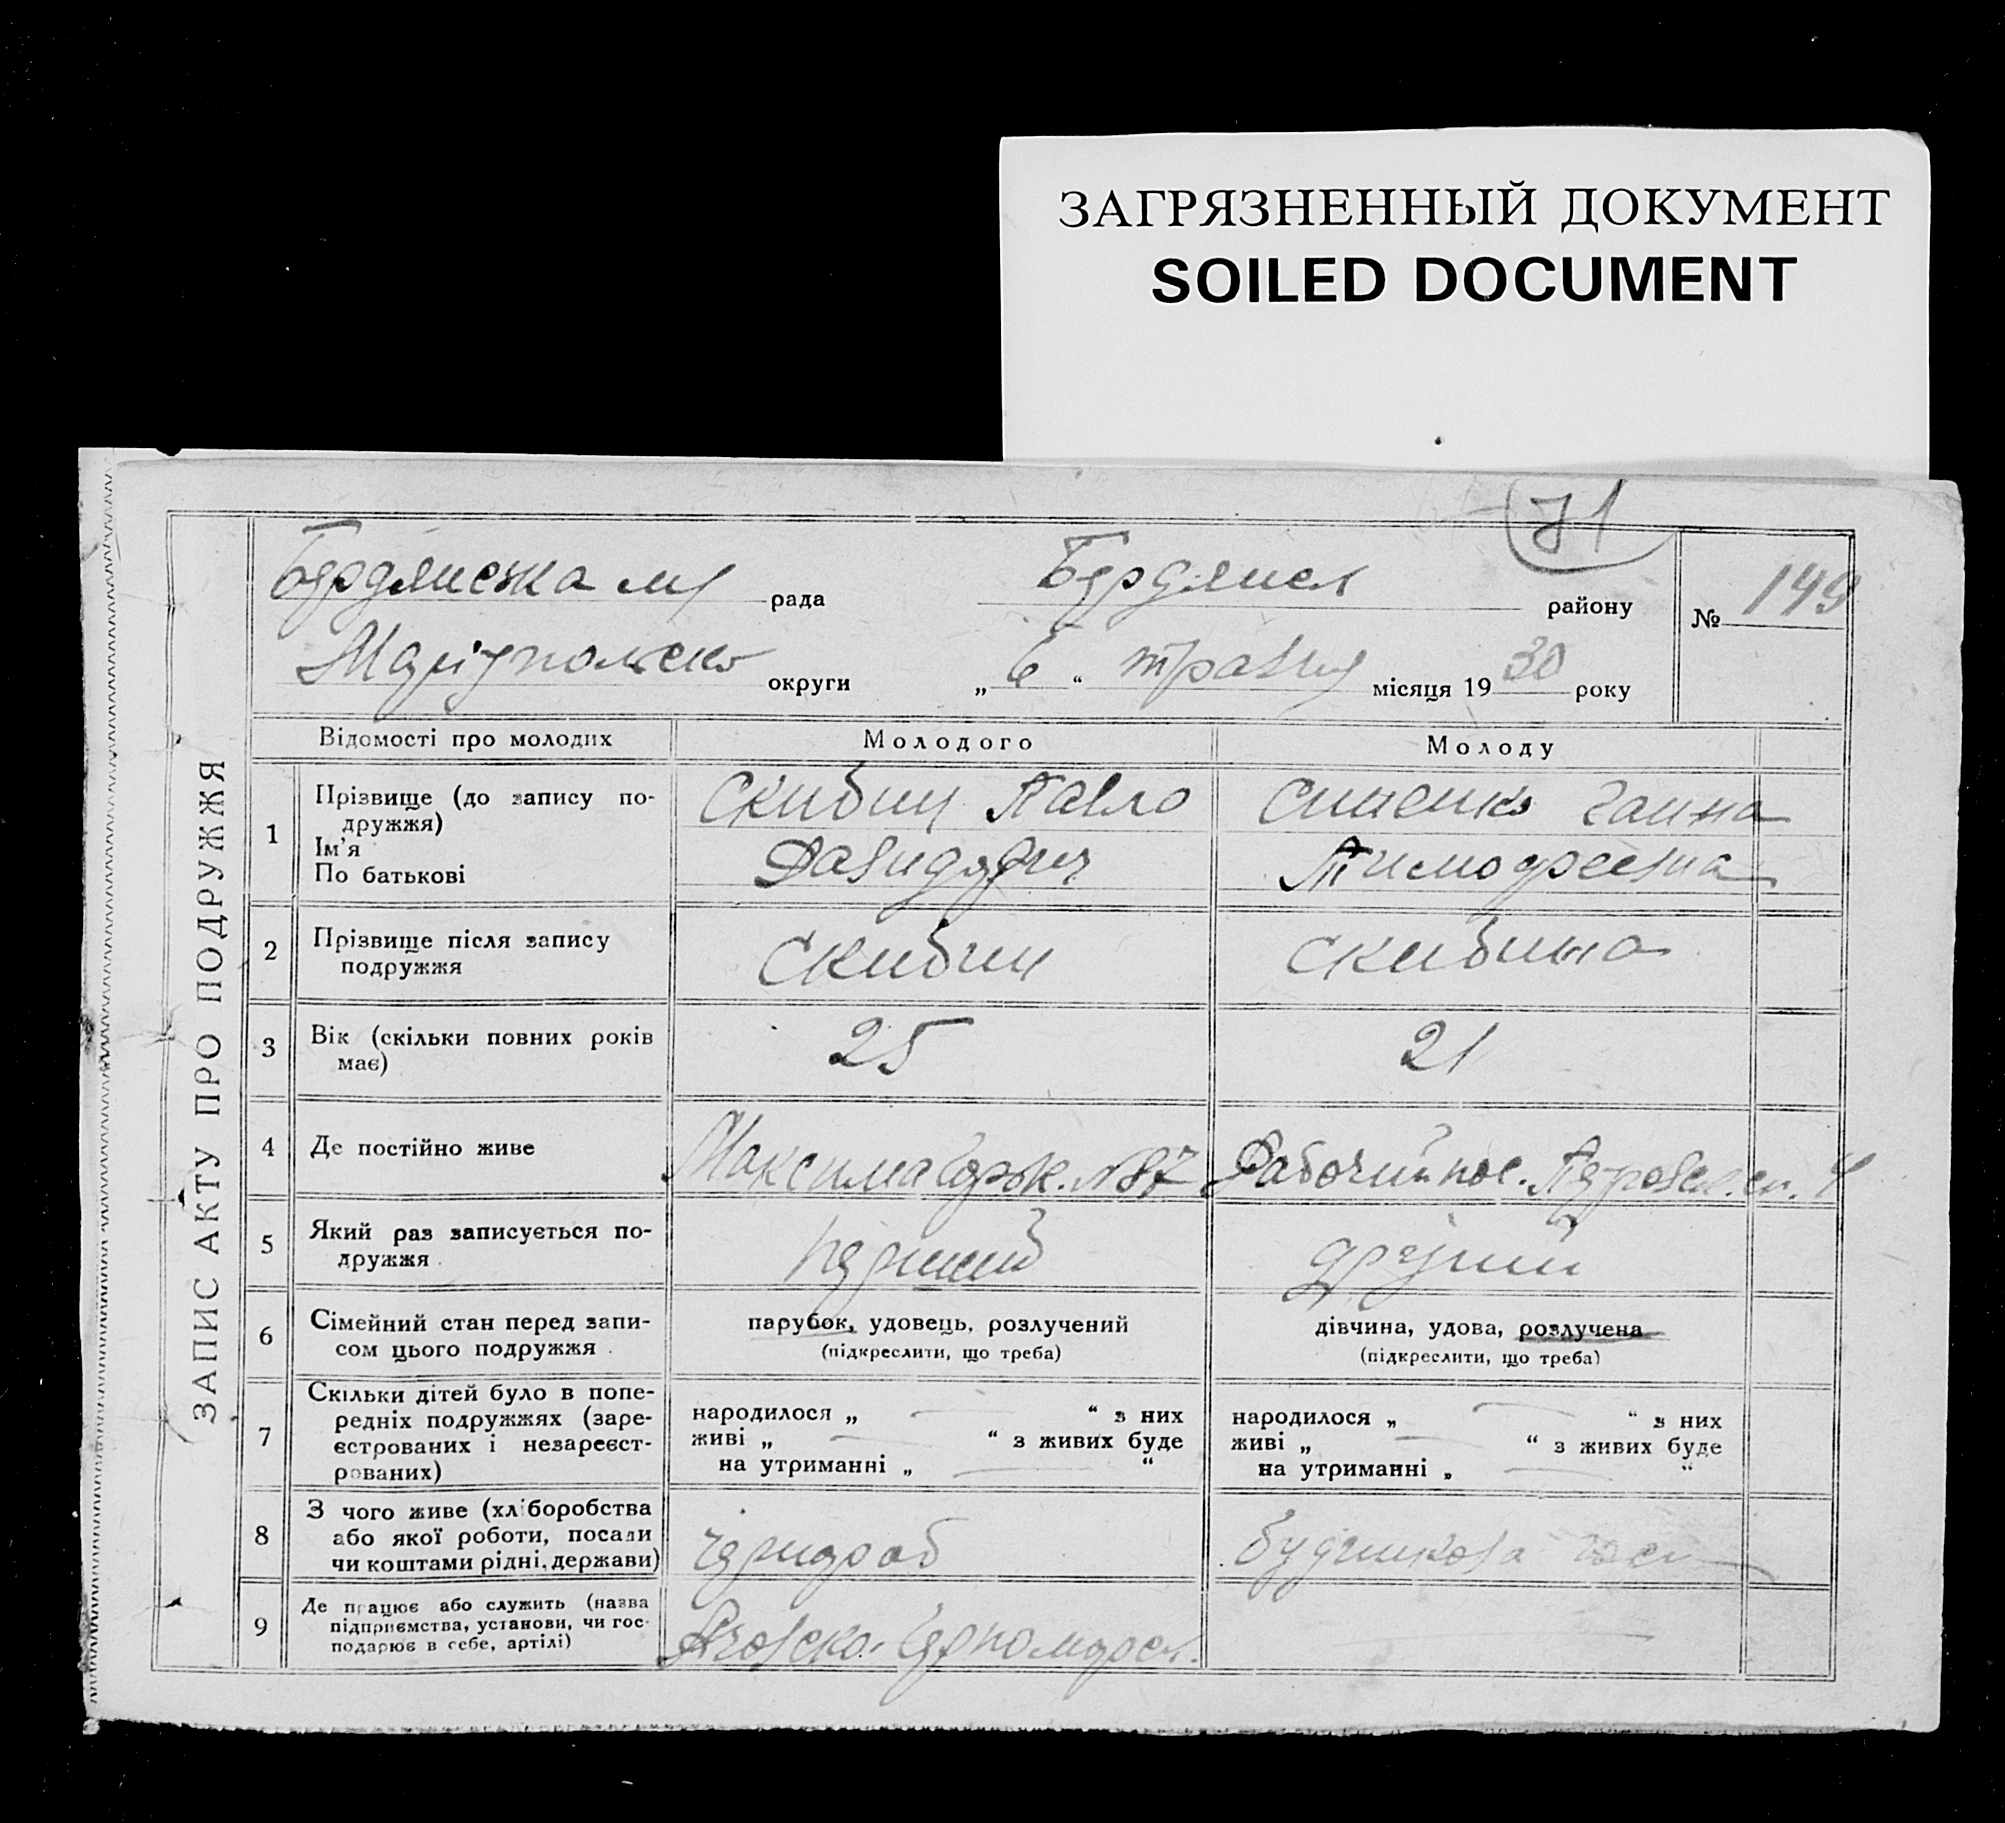 ЗАГРЯЗНЕННЫЙ ДОКУМЕНТ
SOILED DOCUMENT
71
Бердянська м рада Бердянськ району № 149
Маріупольсько округи „ 6 “ травня місяця 19 30 року
ЗАПИС АКТУ ПРО ПОДРУЖЖЯ
Відомості про молодих Молодого Молоду
1 Прізвище (до запису по-
дружжя)
Ім'я
По батькові
Скибин Павло
Давидович
Ганна
Тимофеевна
2 Прізвище після запису
подружжя
Скибин
Скибина
3 Вік (скільки повних років
має)
25
21
4 Де постійно живе
Максима Горьк. №87
Рабочий пос. 4
5 Який раз записується по-
дружжя
перший
другий
6 Сімейний стан перед запи-
сом цього подружжя
парубок, удовець, розлучений
(підкреслити, що треба)
дівчина, удова, розлучена
(підкреслити, що треба)
7 Скільки дітей було в попе-
редніх подружжях (заре-
єстрованих і незареєст-
рованих)
народилося „ — “ з них
живі „ — “ з живих буде
на утриманні „ — “
народилося „ — “ з них
живі „ — “ з живих буде
на утриманні „ — “
8 З чого живе (хліборобства
або якої роботи, посади
чи коштами рідні, держави)
чернороб
9 Де працює або служить (назва
підприємства, установи, чи гос-
подарює в себе, артілі)
Азовско-Черноморск.
—